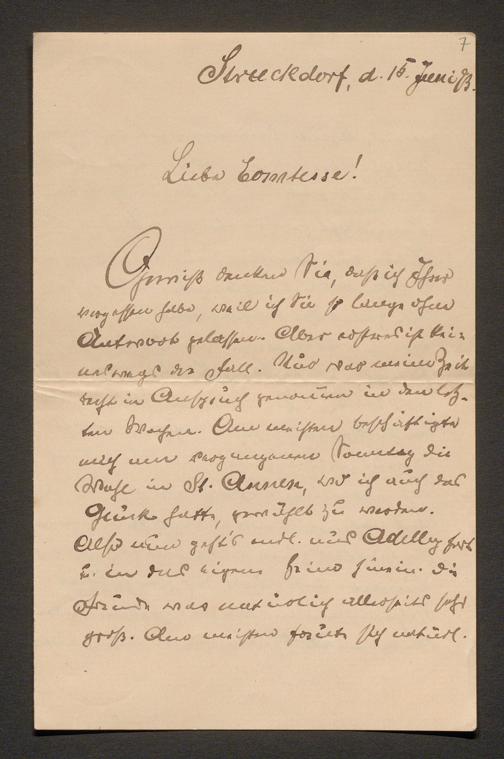 7
Struckdorf, d. 15. Juni 93.
Liebe Comtesse!
Gewiß denken Sie, daß ich Ihrer
vergessen habe, weil ich Sie so lange ohne
Antwort gelassen. Aber ist kei-
neswegs der Fall. Nur war meine Zeit
recht in Anspruch genommen in den letz-
ten Wochen. Am meisten beschäftigte
mich am vergangenen Sonntag die
Wahl in St. Annen, wo ich auch das
Glück hatte, gewählt zu werden.
Also nun geht's endl. aus Adelby fort
u. in das eigene Heim hinein. Die
Freude war natürlich allerseits sehr
groß. Am meisten freute sich natürl.